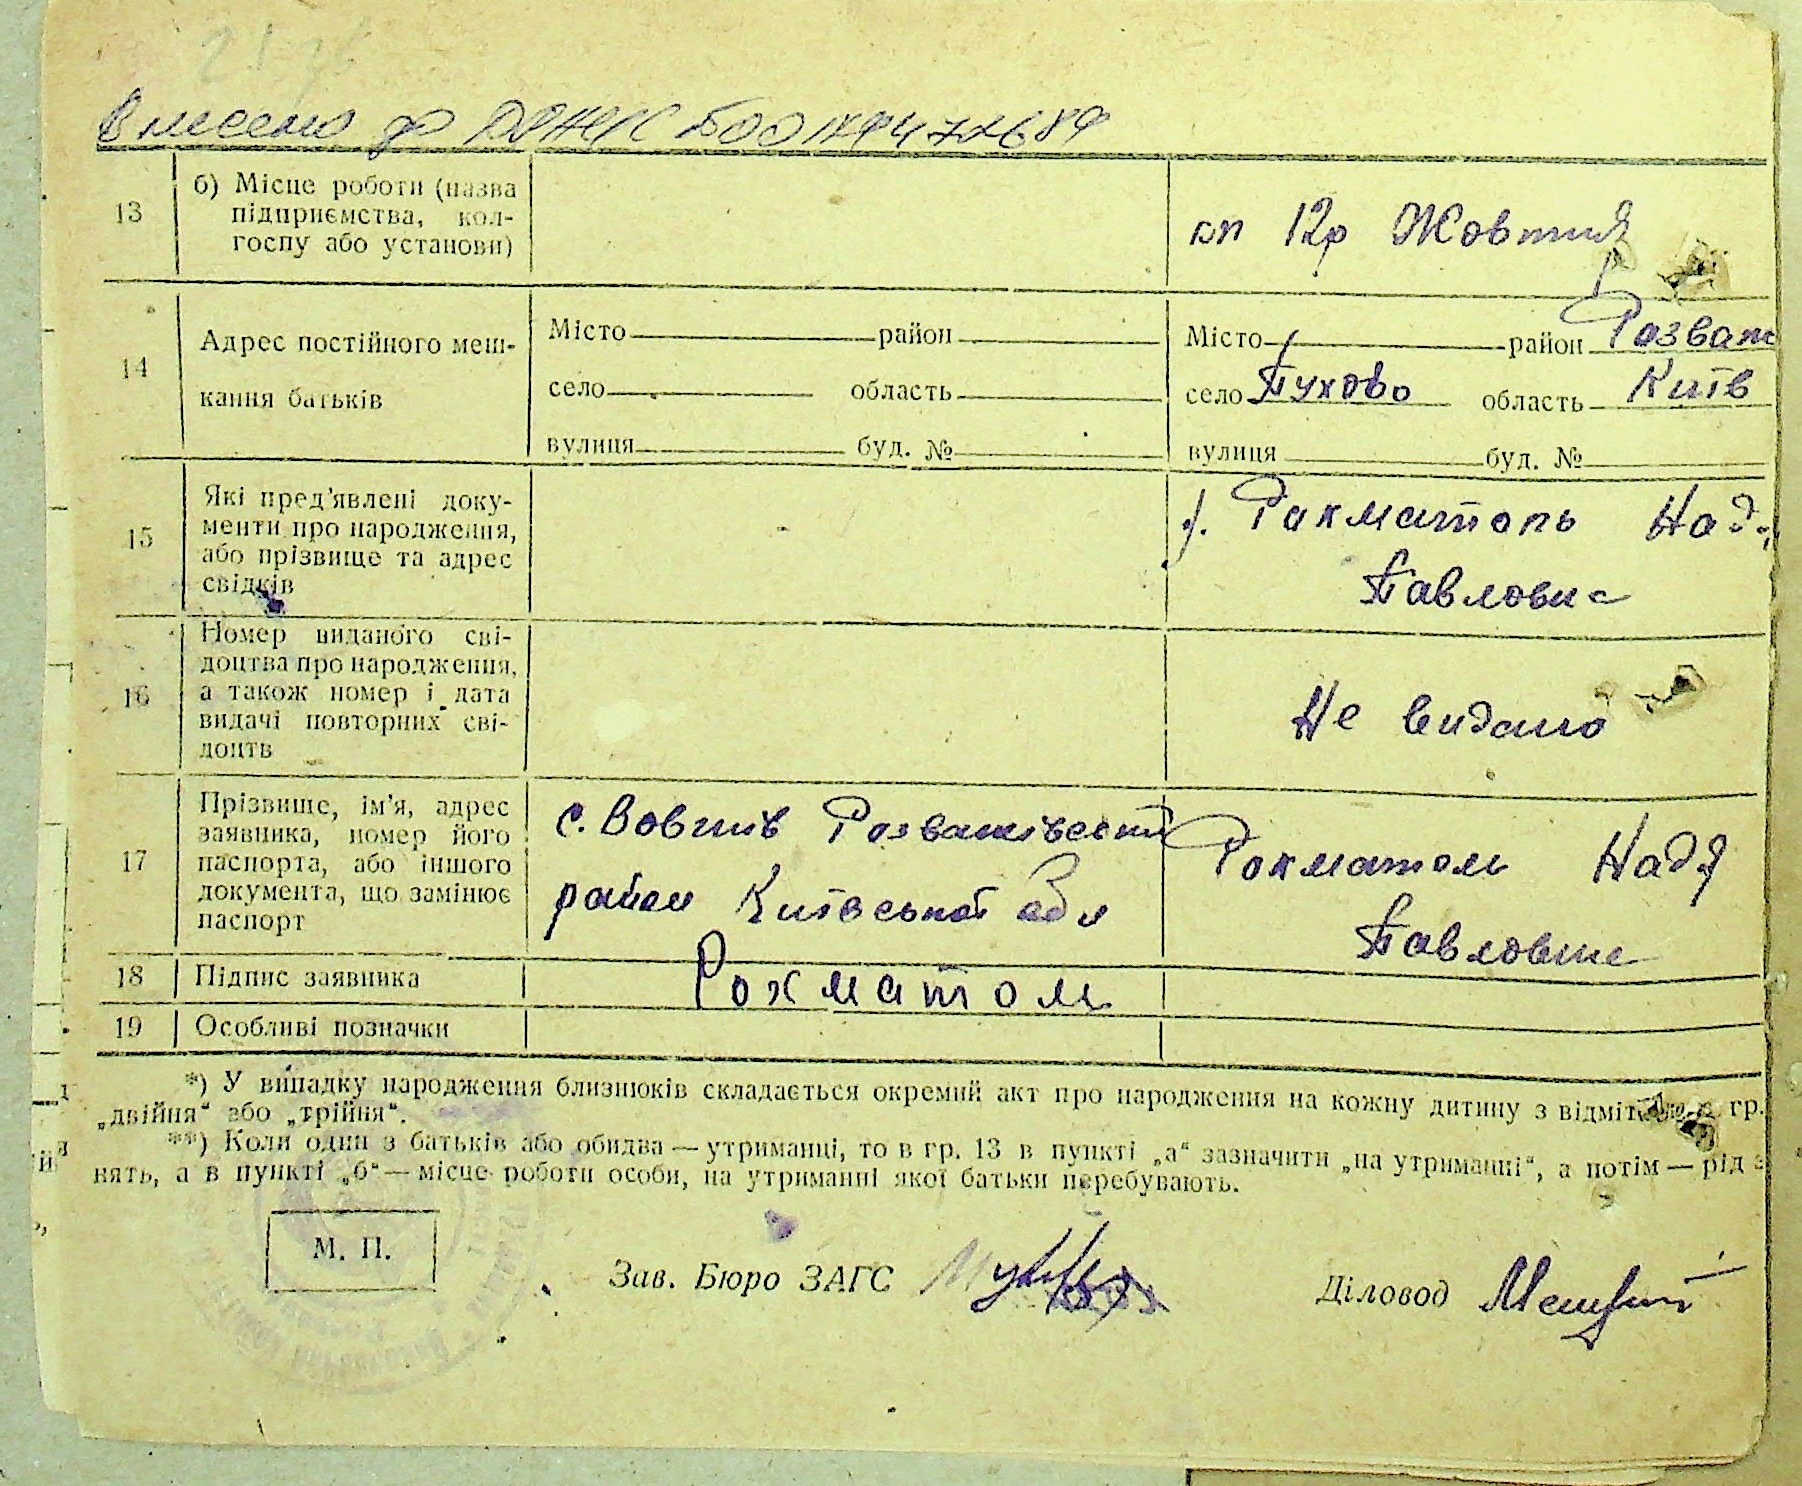 Внесено до ДРАЦС 00179472689
13 б) Місце роботи (назва підприємства, колгоспу або установи)
кп 12р Жовтня
14 Адрес постійного мешкання батьків
Місто район
село область
вулиця буд. №
Місто район Розваж
село Пухово область Київ
вулиця буд. №
15 Які пред'явлені документи про народження, або прізвище та адрес свідків
Рахматоль Над.
Павловна
16 Номер виданого свідоцтва про народження, а також номер і дата видачі повторних свідоцтв
Не видано
17 Прізвище, ім'я, адрес заявника, номер його паспорта, або іншого документа, що замінює паспорт
с. Вовчків Розважівський
район Київської обл
Рохматоль Надя
Павловна
18 Підпис заявника
Рохматоль
19 Особливі позначки
*) У випадку народження близнюків складається окремий акт про народження на кожну дитину з відміт гр.
„двійня“ або „трійня“.
**) Коли один з батьків або обидва — утриманці, то в гр. 13 в пункті „а“ зазначити „на утриманні“, а потім — рід з
нять, а в пункті „б“ — місце роботи особи, на утриманні якої батьки перебувають.
М. П.
Зав. Бюро ЗАГС
Діловод